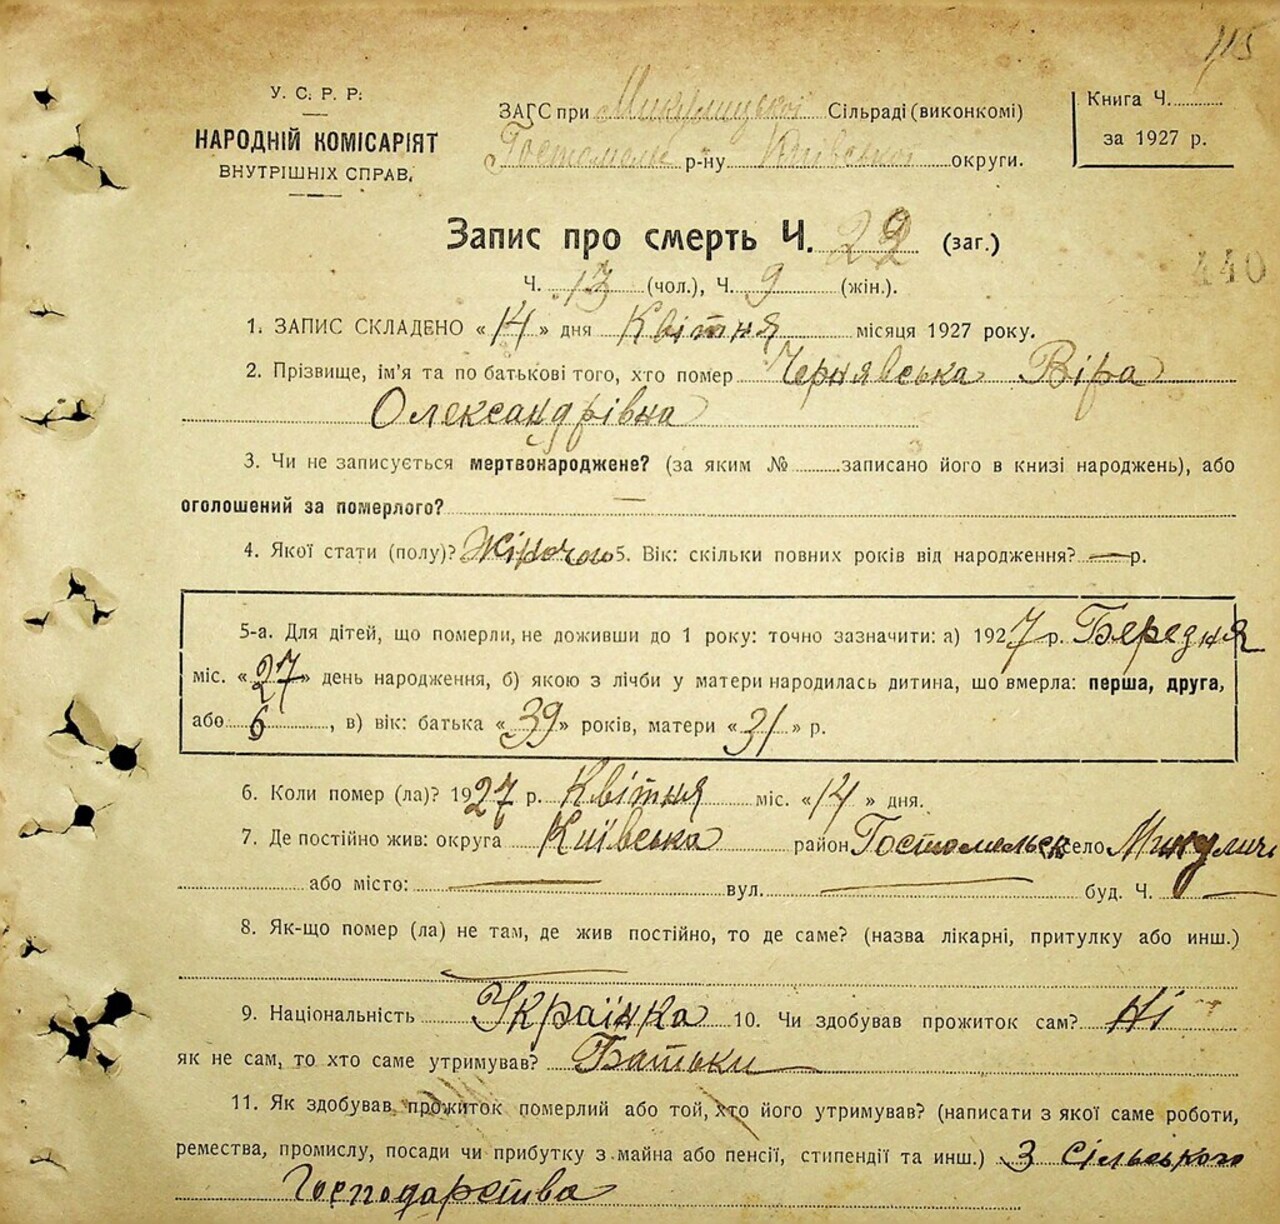 115
У. С. Р. Р.
НАРОДНІЙ КОМІСАРІЯТ
ВНУТРІШНІХ СПРАВ.
ЗАГС при Микулицької Сільраді (виконкомі)
Гостомель р-ну Київської округи.
Книга Ч.
за 1927 р.
Запис про смерть Ч. 22 (заг.)
440
Ч. 13 (чол.), Ч. 9 (жін.).
1. ЗАПИС СКЛАДЕНО «14» дня Квітня місяця 1927 року.
2. Прізвище, ім'я та по батькові того, хто помер Чернявська Віра
Олександрівна
3. Чи не записується мертвонароджене? (за яким № записано його в книзі народжень), або
оголошений за померлого? —
4. Якої стати (полу)? Жіночою 5. Вік: скільки повних років від народження? — р.
5-а. Для дітей, що померли, не доживши до 1 року: точно зазначити: а) 1927 р. Березня
міс. «27» день народження, б) якою з лічби у матери народилась дитина, що вмерла: перша, друга,
або 6, в) вік: батька «39» років, матери «31» р.
6. Коли помер (ла)? 1927 р. Квітня міс. «14» дня.
7. Де постійно жив: округа Київська район Гостомельськ село Микуличі
або місто: — вул. — буд. Ч. —
8. Як-що помер (ла) не там, де жив постійно, то де саме? (назва лікарні, притулку або инш.)
—
9. Національність Українка 10. Чи здобував прожиток сам? Ні
як не сам, то хто саме утримував? Батьки
11. Як здобував прожиток померлий або той, хто його утримував? (написати з якої саме роботи,
ремества, промислу, посади чи прибутку з майна або пенсії, стипендії та инш.) З Сільського
Господарства